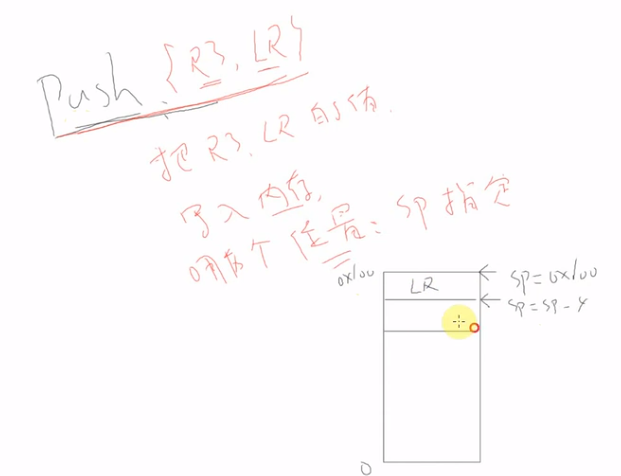 Push {R3, LR}
把 R3、LR 的值
写入 内存,
哪个 位置: SP 指定
0x100
LR
SP=0x100
SP=SP-4
0